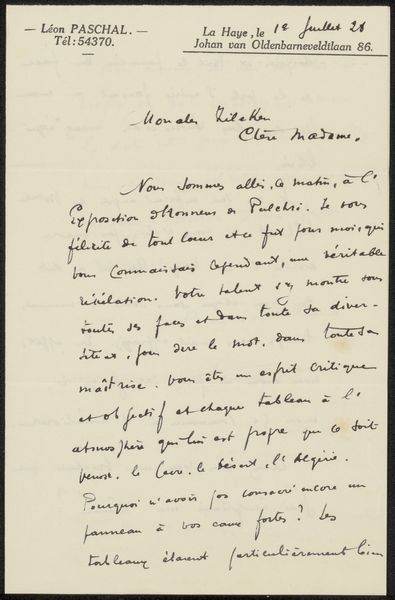 — Léon PASCHAL. —
Tél: 54370.
La Haye, le 12 Juillet 28
Johan van Oldenbarneveldtlaan 86.
Mon cher Zilcken
Chère Madame,
Nous sommes allés, ce matin, à l'
Exposition d'Honneur de Pulchri. Je vous
félicite de tout coeur et ce fut pour moi, qui
vous connaissais cependant, une véritable
révélation. Votre talent s'y montre sous
toutes ses faces et dans toute sa diver-
sité et, pour dire le mot, dans toute sa
maîtrise. Vous êtes un esprit critique
et objectif et chaque tableau à l'
atmosphère qui lui est propre que ce soit
Venise, le
le Désert, l'Algérie.
Pourquoi n'avoir pas consacré encore un
panneau à vos eaux fortes? Les
tableaux étaient particulièrement bien